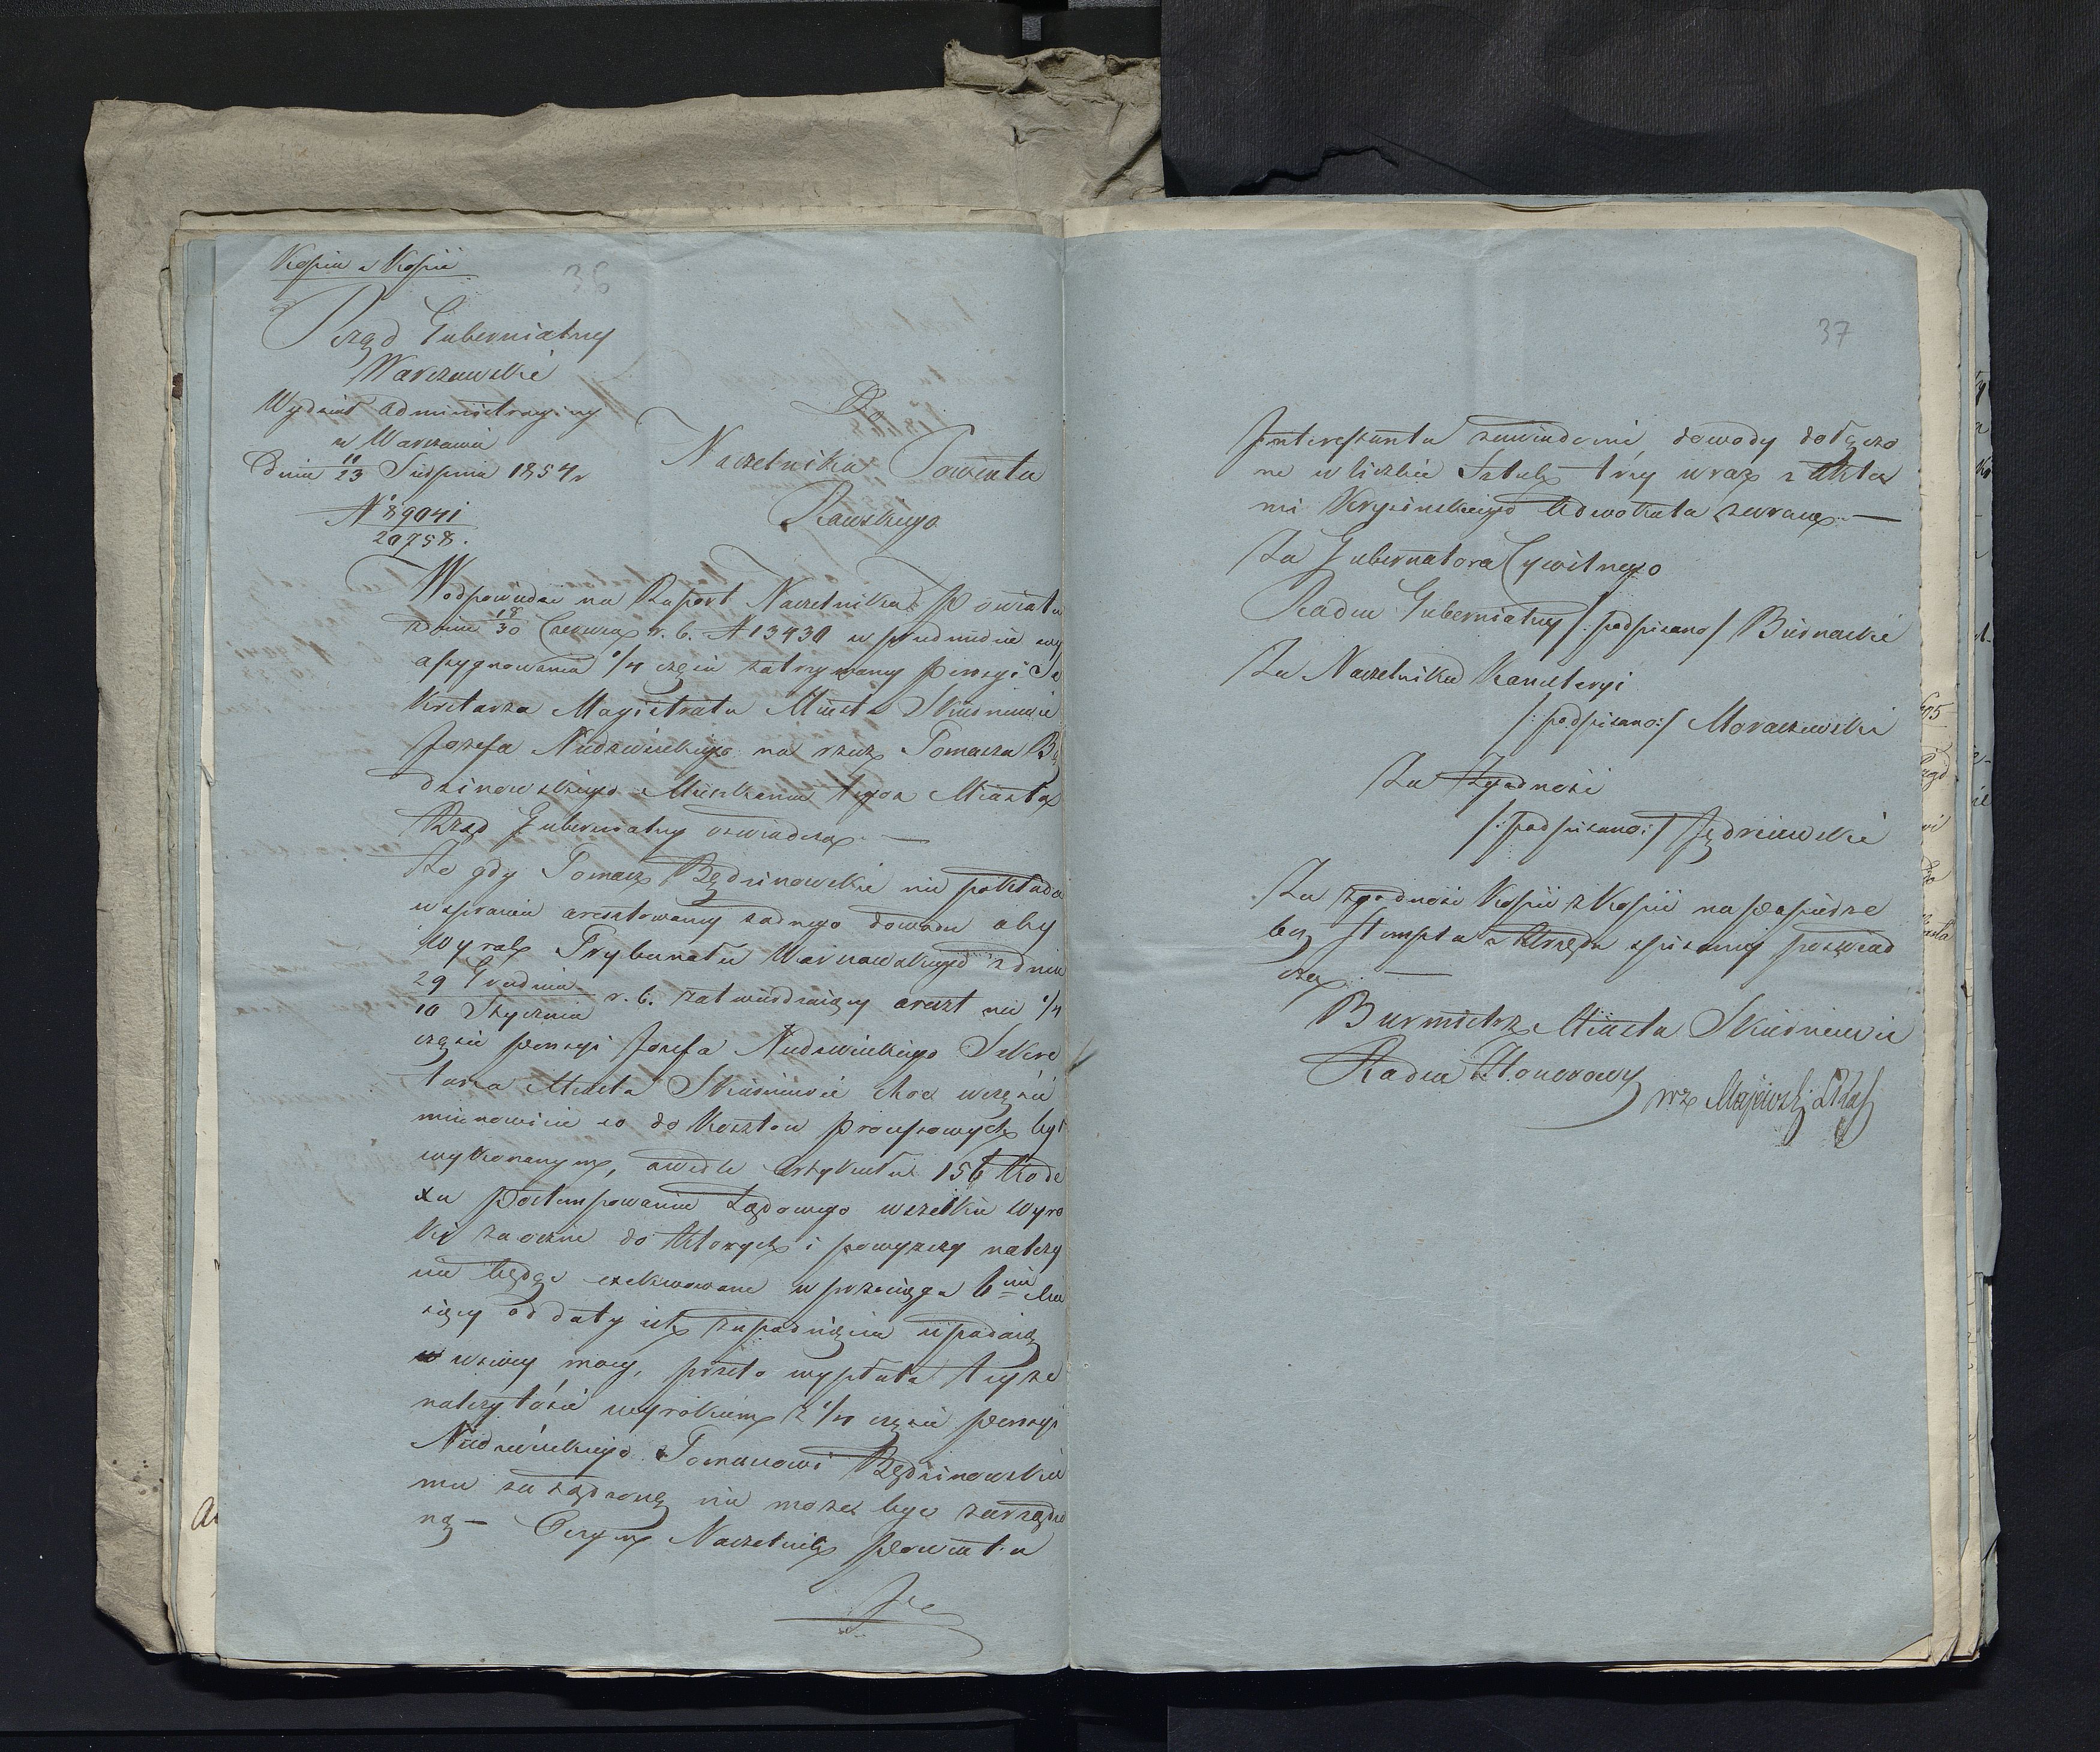 Kopia z Kopii
36
Rząd Gubernialny
Warszawski
Wydział Administracyiny
w Warszawie
Dnia 11/23 Sierpnia 1854 r
N 89041
20758.
Do
Naczelnika Powiatu
Rawskiego
W odpowiedzi na Raport Naczelnika Powiatu
z dnia 18/30 Czerwca r. b. N 13430 w przedmiocie wy
assygnowania 1/4 części zatrzymaney pensyi Se
kretarza Magistratu Miasta Skierniewic
Jozefa Niedzwieckiego na rzecz Tomasza Bę
dzinowskiego Mieszkanca tegoz Miasta
Rząd Gubernialny oswiadcza. —
Ze gdy Tomasz Będzinowski nie pokłada
w sprawie aresztowaney zadnego dowodu aby
Wyrok Trybunału Warszawskiego z dnia
29 Grudnia
10 Stycznia r. b. zatwierdzaiący areszt na 1/4
części pensyi Jozefa Niedzwieckiego Sekre
tarza Miasta Skierniewic choc w części
mianowicie co do Kosztow processowych był
wykonanym, a wedle Artykułu 156 Kode
xu Postempowania Sądowego wszelkie Wyro
ki zaoczne do ktorych i powyzszy nalezy
nie będąc exekwowane w przeciągu 6ciu Mie
sięcy od daty ich zapadnięcia upadaią
w swoiey mocy, przeto wypłata teyze
nalezytosci wyrokiem z 1/4 części pensyi
Niedzwieckiego Tomaszowi Będzinowskie
mu zasądzoney nie moze byc zarządzo
ną — O czym Naczelnik Powiatu
37
Interessanta zawiadomi, dowody dołączo
ne w liczbie Sztuk trzy wraz z Akta
mi Krysinskiego Adwokata zwraca. —
Za Gubernatora Cywilnego
Radca Gubernialny /: podpisano / Biernacki
Za Naczelnika Kancelaryi
/: podpisano :/ Moraczewski
Za Zgodność
/: podpisano :/ Jędrzeiewski
Za zgodność Kopii z Kopii na papierze
bez stempla z Urzędu spisaney poswiad
cza. —
Burmistrz Miasta Skierniewic
Radca Honorowy
wz Majewski